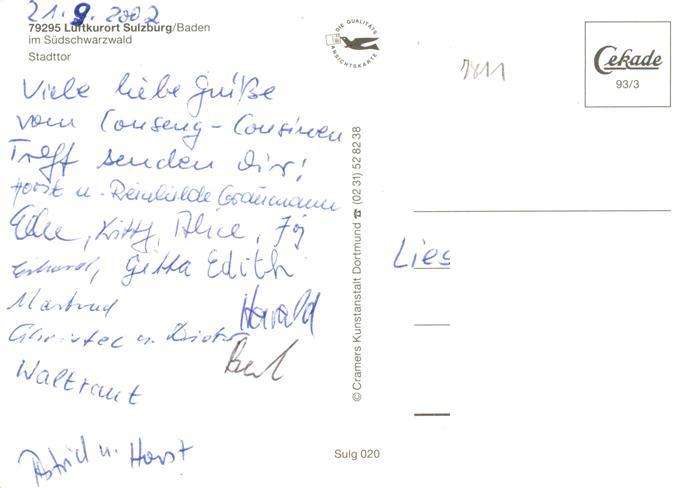 21.9.2002
79295 Luftkurort Sulzburg/Baden
im Südschwarzwald
Stadttor
Viele liebe Grüße
vom Couseng-Cousinen
Treff senden Dir!
Horst u. Reinhilde Graumann
Elke, Kitty, Alice,
Gitta Edith
Martrud
Harald
Christel u. Dieter
Waltraut
Astrid u. Horst
DIE QUALITÄTS
ANSICHTSKARTE
© Cramers Kunstanstalt Dortmund ☎ (0231) 52 82 38
Sulg 020
Cekade
93/3
Lies